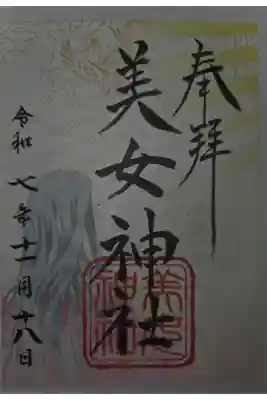 奉拝
美女神社
令和七年十一月十八日